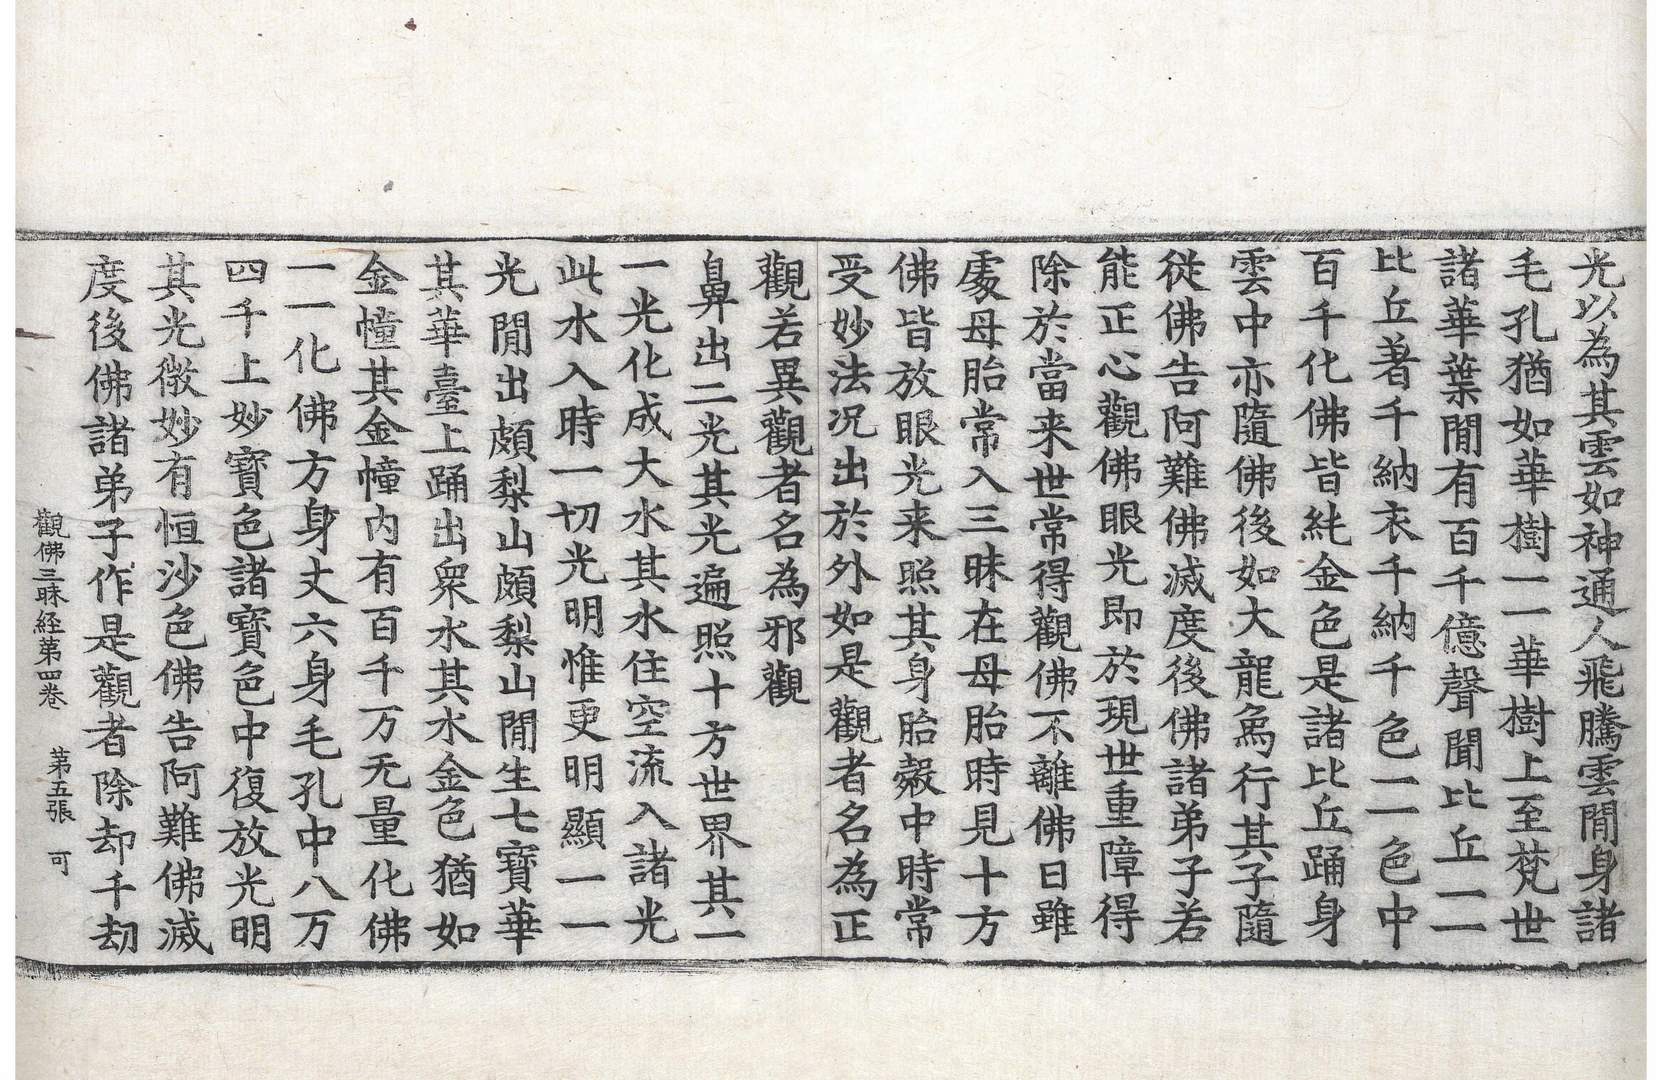 光以為其雲如神通人飛騰雲閒身諸
毛孔猶如華樹一一華樹上至梵世
諸華葉閒有百千億聲聞比丘一一
比丘著千納衣千納千色一一色中
百千化佛皆純金色是諸比丘踊身
雲中亦隨佛後如大龍象行其子隨
從佛告阿難佛滅度後佛諸弟子若
能正心觀佛眼光即於現世重障得
除於當来世常得觀佛不離佛日雖
處母胎常入三昧在母胎時見十方
佛皆放眼光来照其身胎㲉中時常
受妙法况出於外如是觀者名為正
觀若異觀者名為邪觀
鼻出二光其光遍照十方世界其一
一光化成大水其水住空流入諸光
此水入時一切光明惟更明顯一一
光閒出頗梨山頗梨山閒生七寶華
其華臺上踊出衆水其水金色猶如
金幢其金幢内有百千万无量化佛
一一化佛方身丈六身毛孔中八万
四千上妙寶色諸寶色中復放光明
其光微妙有恒沙色佛告阿難佛滅
度後佛諸弟子作是觀者除却千劫
觀佛三昧経第四卷 第五張 可